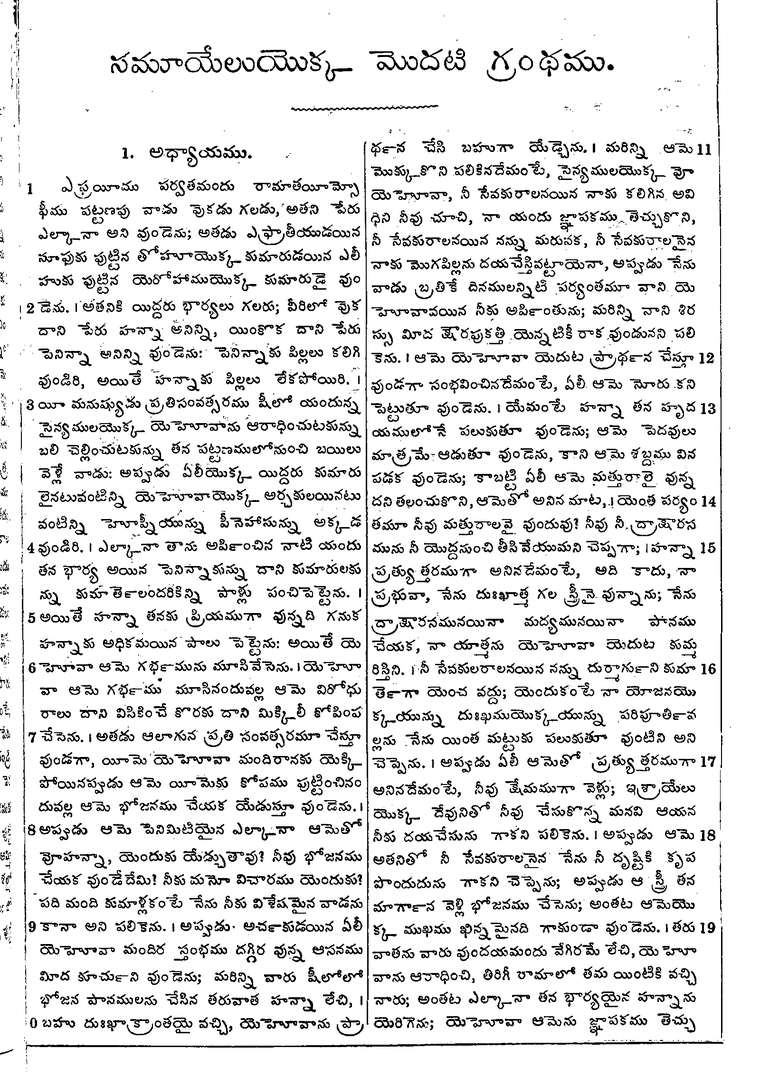 సమూయేలుయొక్క మొదటి గ్రంథము.
1. అధ్యాయము.
1 ఎఫ్రయీము పర్వతమందు రామాతయీమ్సో
ఫీము పట్టణపు వాడు వొకడు గలడు, అతని పేరు
ఎల్కానా అని వుండెను; అతడు ఎఫ్రాతీయుడయిన
సూఫుకు పుట్టిన తోహూయొక్క కుమారుడయిన ఎలీ
హుకు పుట్టిన యెరోహాముయొక్క కుమారుడై వుం
2 డెను. । అతనికి యిద్దరు భార్యలు గలరు; వీరిలో వొక
దాని పేరు హన్నా అనిన్ని, యింకొక దాని పేరు
పెనిన్నా అనిన్ని వుండెను: పెనిన్నాకు పిల్లలు కలిగి
వుండిరి, అయితే హన్నాకు పిల్లలు లేకపోయిరి. ।
3 యీ మనుష్యుడు ప్రతిసంవత్సరము షీలో యందున్న
సైన్యములయొక్క యెహోవాను ఆరాధించుటకున్ను
బలి చెల్లించుటకున్ను తన పట్టణములోనుంచి బయిలు
వెళ్లే వాడు: అప్పుడు ఏలీయొక్క యిద్దరు కుమారు
లైనటువంటిన్ని యెహోవాయొక్క అర్చకులయినటు
వంటిన్ని హొఫ్నీయున్ను పీనెహాసున్ను అక్కడ
4 వుండిరి. । ఎల్కానా తాను అర్పించిన నాటి యందు
తన భార్య అయిన పెనిన్నాకున్ను దాని కుమారులకు
న్ను కుమార్తెలందరికిన్ని పాళ్లు పంచిపెట్టెను. ।
5 అయితే హన్నా తనకు ప్రియముగా వున్నది గనుక
హన్నాకు అధికమయిన పాలు పెట్టెను: అయితే యె
6 హోవా ఆమె గర్భమును మూసివేసెను. । యెహో
వా ఆమె గర్భము మూసినందువల్ల ఆమె విరోధు
రాలు దాని విసికించే కొరకు దాని మిక్కిలీ కోపింప
7 చేసెను. । అతడు ఆలాగున ప్రతి సంవత్సరమూ చేస్తూ
వుండగా, యీమె యెహోవా మందిరానకు యెక్కి
పోయినప్పుడు ఆమె యీమెకు కోపము పుట్టించినం
దువల్ల ఆమె భోజనము చేయక యేడుస్తూ వుండెను. ।
8 అప్పుడు ఆమె పెనిమిటియైన ఎల్కానా ఆమెతో
వోహన్నా, యెందుకు యేడ్చుతావు? నీవు భోజనము
చేయక వుండేదేమి? నీకు మనో విచారము యెందుకు?
పది మంది కుమాళ్లకంటే నేను నీకు విశేషమైన వాడను
9 కానా అని పలికెను. । అప్పుడు అర్చకుడయిన ఏలీ
యెహోవా మందిర స్తంభము దగ్గిర వున్న ఆసనము
మీద కూర్చుని వుండెను; మరిన్ని వారు షీలోలో
భోజన పానములను చేసిన తరువాత హన్నా లేచి, ।
0 బహు దుఃఖాక్రాంతయై వచ్చి, యెహోవాను ప్రా
ర్థన చేసి బహుగా యేడ్చెను. । మరిన్ని ఆమె 11
మొక్కుకొని పలికినదేమంటే, సైన్యములయొక్క వో
యెహోవా, నీ సేవకురాలనయిన నాకు కలిగిన అవి
ధిని నీవు చూచి, నా యందు జ్ఞాపకము తెచ్చుకొని,
నీ సేవకురాలనయిన నన్ను మరువక, నీ సేవకురాలనైన
నాకు మొగపిల్లను దయచేస్తివట్టాయెనా, అప్పుడు నేను
వాడు బ్రతికే దినములన్నిటి పర్యంతమూ వాని యె
హోవావయిన నీకు అర్పింతును; మరిన్ని వాని శిర
స్సు మీద క్షౌరపుకత్తి యెన్నటికీ రాక వుండునని పలి
కెను. । ఆమె యెహోవా యెదుట ప్రార్థన చేస్తూ 12
వుండగా సంభవించినదేమంటే, ఏలీ ఆమె నోరు కని
పెట్టుతూ వుండెను. । యేమంటే హన్నా తన హృద 13
యములోనే పలుకుతూ వుండెను; ఆమె పెదవులు
మాత్రమే ఆడుతూ వుండెను, కాని ఆమె శబ్దము విన
పడక వుండెను; కాబట్టి ఏలీ ఆమె మత్తురాలై వున్న
దని తలంచుకొని, ఆమెతో అనిన మాట, । యెంత పర్యం 14
తమూ నీవు మత్తురాలవై వుందువు? నీవు నీ ద్రాక్షారస
మును నీ యొద్దనుంచి తీసివేయుమని చెప్పగా; । హన్నా 15
ప్రత్యుత్తరముగా అనినదేమంటే, అది కాదు, నా
ప్రభువా, నేను దుఃఖాత్మ గల స్త్రీనై వున్నాను; నేను
ద్రాక్షారసమునయినా మద్యమునయినా పానము
చేయక, నా యాత్మను యెహోవా యెదుట కుమ్మ
రిస్తిని. । నీ సేవకులరాలనయిన నన్ను దుర్మార్గుని కుమా 16
ర్తెగా యెంచ వద్దు; యెందుకంటే నా యోజనయొ
క్కయున్ను దుఃఖముయొక్కయున్ను పరిపూర్తివ
ల్లను నేను యింత మట్టుకు పలుకుతూ వుంటిని అని
చెప్పెను. । అప్పుడు ఏలీ ఆమెతో ప్రత్యుత్తరముగా 17
అనినదేమంటే, నీవు క్షేమముగా వెళ్లు; ఇశ్రాయేలు
యొక్క దేవునితో నీవు చేసుకొన్న మనవి ఆయన
నీకు దయచేసును గాకని పలికెను. । అప్పుడు ఆమె 18
అతనితో నీ సేవకురాలనైన నేను నీ దృష్టికి కృప
పొందుదును గాకని చెప్పెను; అప్పుడు ఆ స్త్రీ తన
మార్గాన వెళ్లి భోజనము చేసెను; అంతట ఆమెయొ
క్క ముఖము ఖిన్నమైనది గాకుండా వుండెను. । తరు 19
వాతను వారు వుందయమందు వేగిరమే లేచి, యెహో
వాను ఆరాధించి, తిరిగీ రామాలో తమ యింటికి వచ్చి
నారు; అంతట ఎల్కానా తన భార్యయైన హన్నాను
యెరిగెను; యెహోవా ఆమెను జ్ఞాపకము తెచ్చు